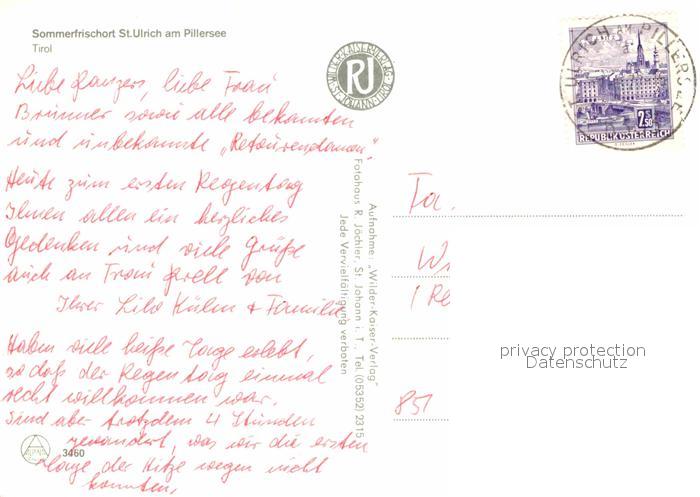 Sommerfrischort St.Ulrich am Pillersee
Tirol
Liebe Panzers, liebe Frau
Brunner sowie alle bekannten
und unbekannte „Retourendamen“,
Heute zum ersten Regentag
Ihnen allen ein herzliches
Gedenken und viele Grüße
auch an Frau Prell von
Ihrer Lilo Kühn + Familie
Haben viele heiße Tage erlebt,
so daß der Regentag einmal
recht willkommen war.
Sind aber trotzdem 4 Stunden
gewandert, was wir die ersten
Tage der Hitze wegen nicht
konnten.
3460
WILDER-KAISER-VERLAG
ST. JOHANN-TIROL
RJ
Aufnahme: „Wilder-Kaiser-Verlag“
Fotohaus R. Jöchler, St. Johann i. T., Tel. (05352) 2315
Jede Vervielfältigung verboten
ULRICH AM PILLERSEE
2.50 S
REPUBLIK ÖSTERREICH
Fa.
Wi
(Re
851
privacy protection
Datenschutz